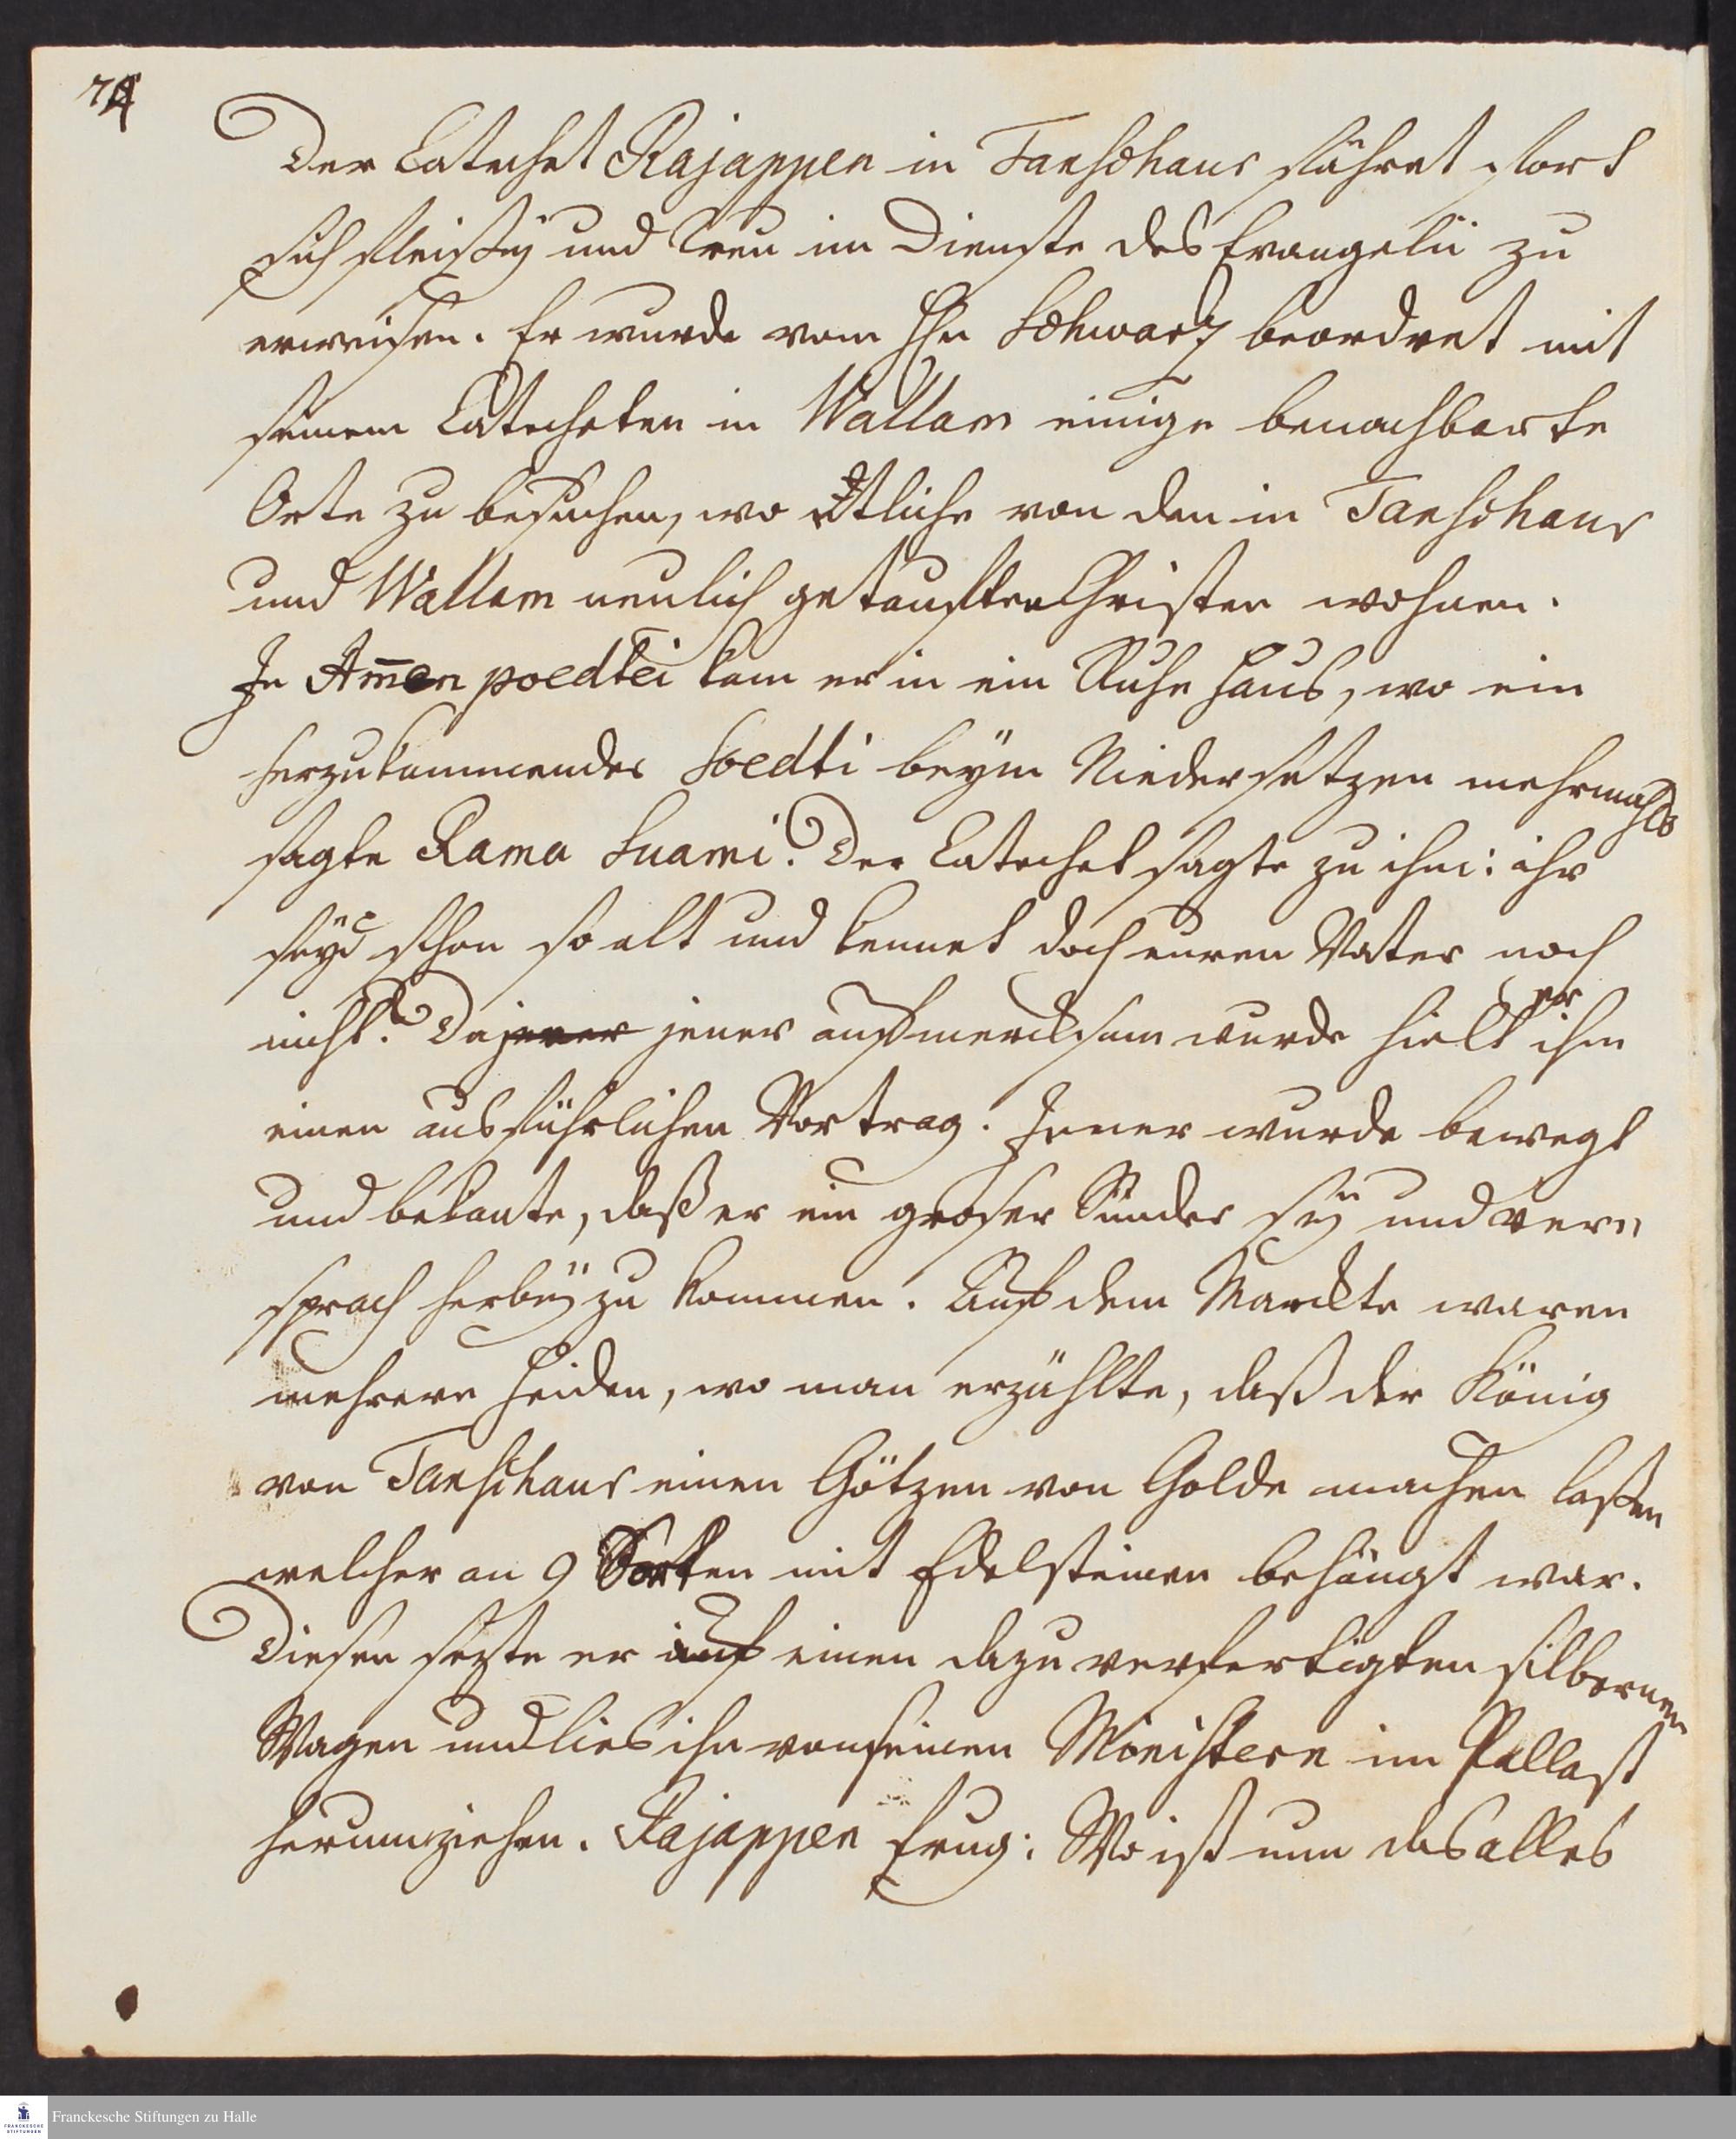 74
Der Catechet Rajappen in Tanschaur fähret fort
sich fleißig und treu im Dienste des Evangelii zu
erweisen. Er wurde vom Hn Schwarz beordret mit
seinem Catecheten in Wallam einige benachbarte
Orte zu besuchen, wo Etliche von den in Tanschaur
und Wallam neulich getauften Christen wohnen.
In Am̅en poedtei kam er in ein Ruhe Haus, wo ein
herzukommender Soedti beym Niedersetzen mehrmahls
sagte Rama Suami. Der Catechet sagte zu ihm: ihr
seyd schon so alt und kennet doch euren Vater noch
nicht? Da jener jener aufmercksam wurde hielt er ihm
einen ausführlichen Vortrag. Jener wurde bewegt
und bekante, daß er ein groser Sünder sey und ver„
sprach herbey zu kommen. Auf dem Marckte waren
mehrere Heiden, wo man erzählte, daß der König
von Tanschaur einen Götzen von Golde machen laßen
welcher an 9 Sorten mit Edelsteinen behängt war.
Diesen sezte er auf einen dazu verfertigten silbernen
Wagen und lies ihn von seinen Ministern im Pallast
herumziehen. Rajappen frug: Wo ist nun das alles
Franckesche Stiftungen zu Halle
FRANCKESCHE
STIFTUNGEN